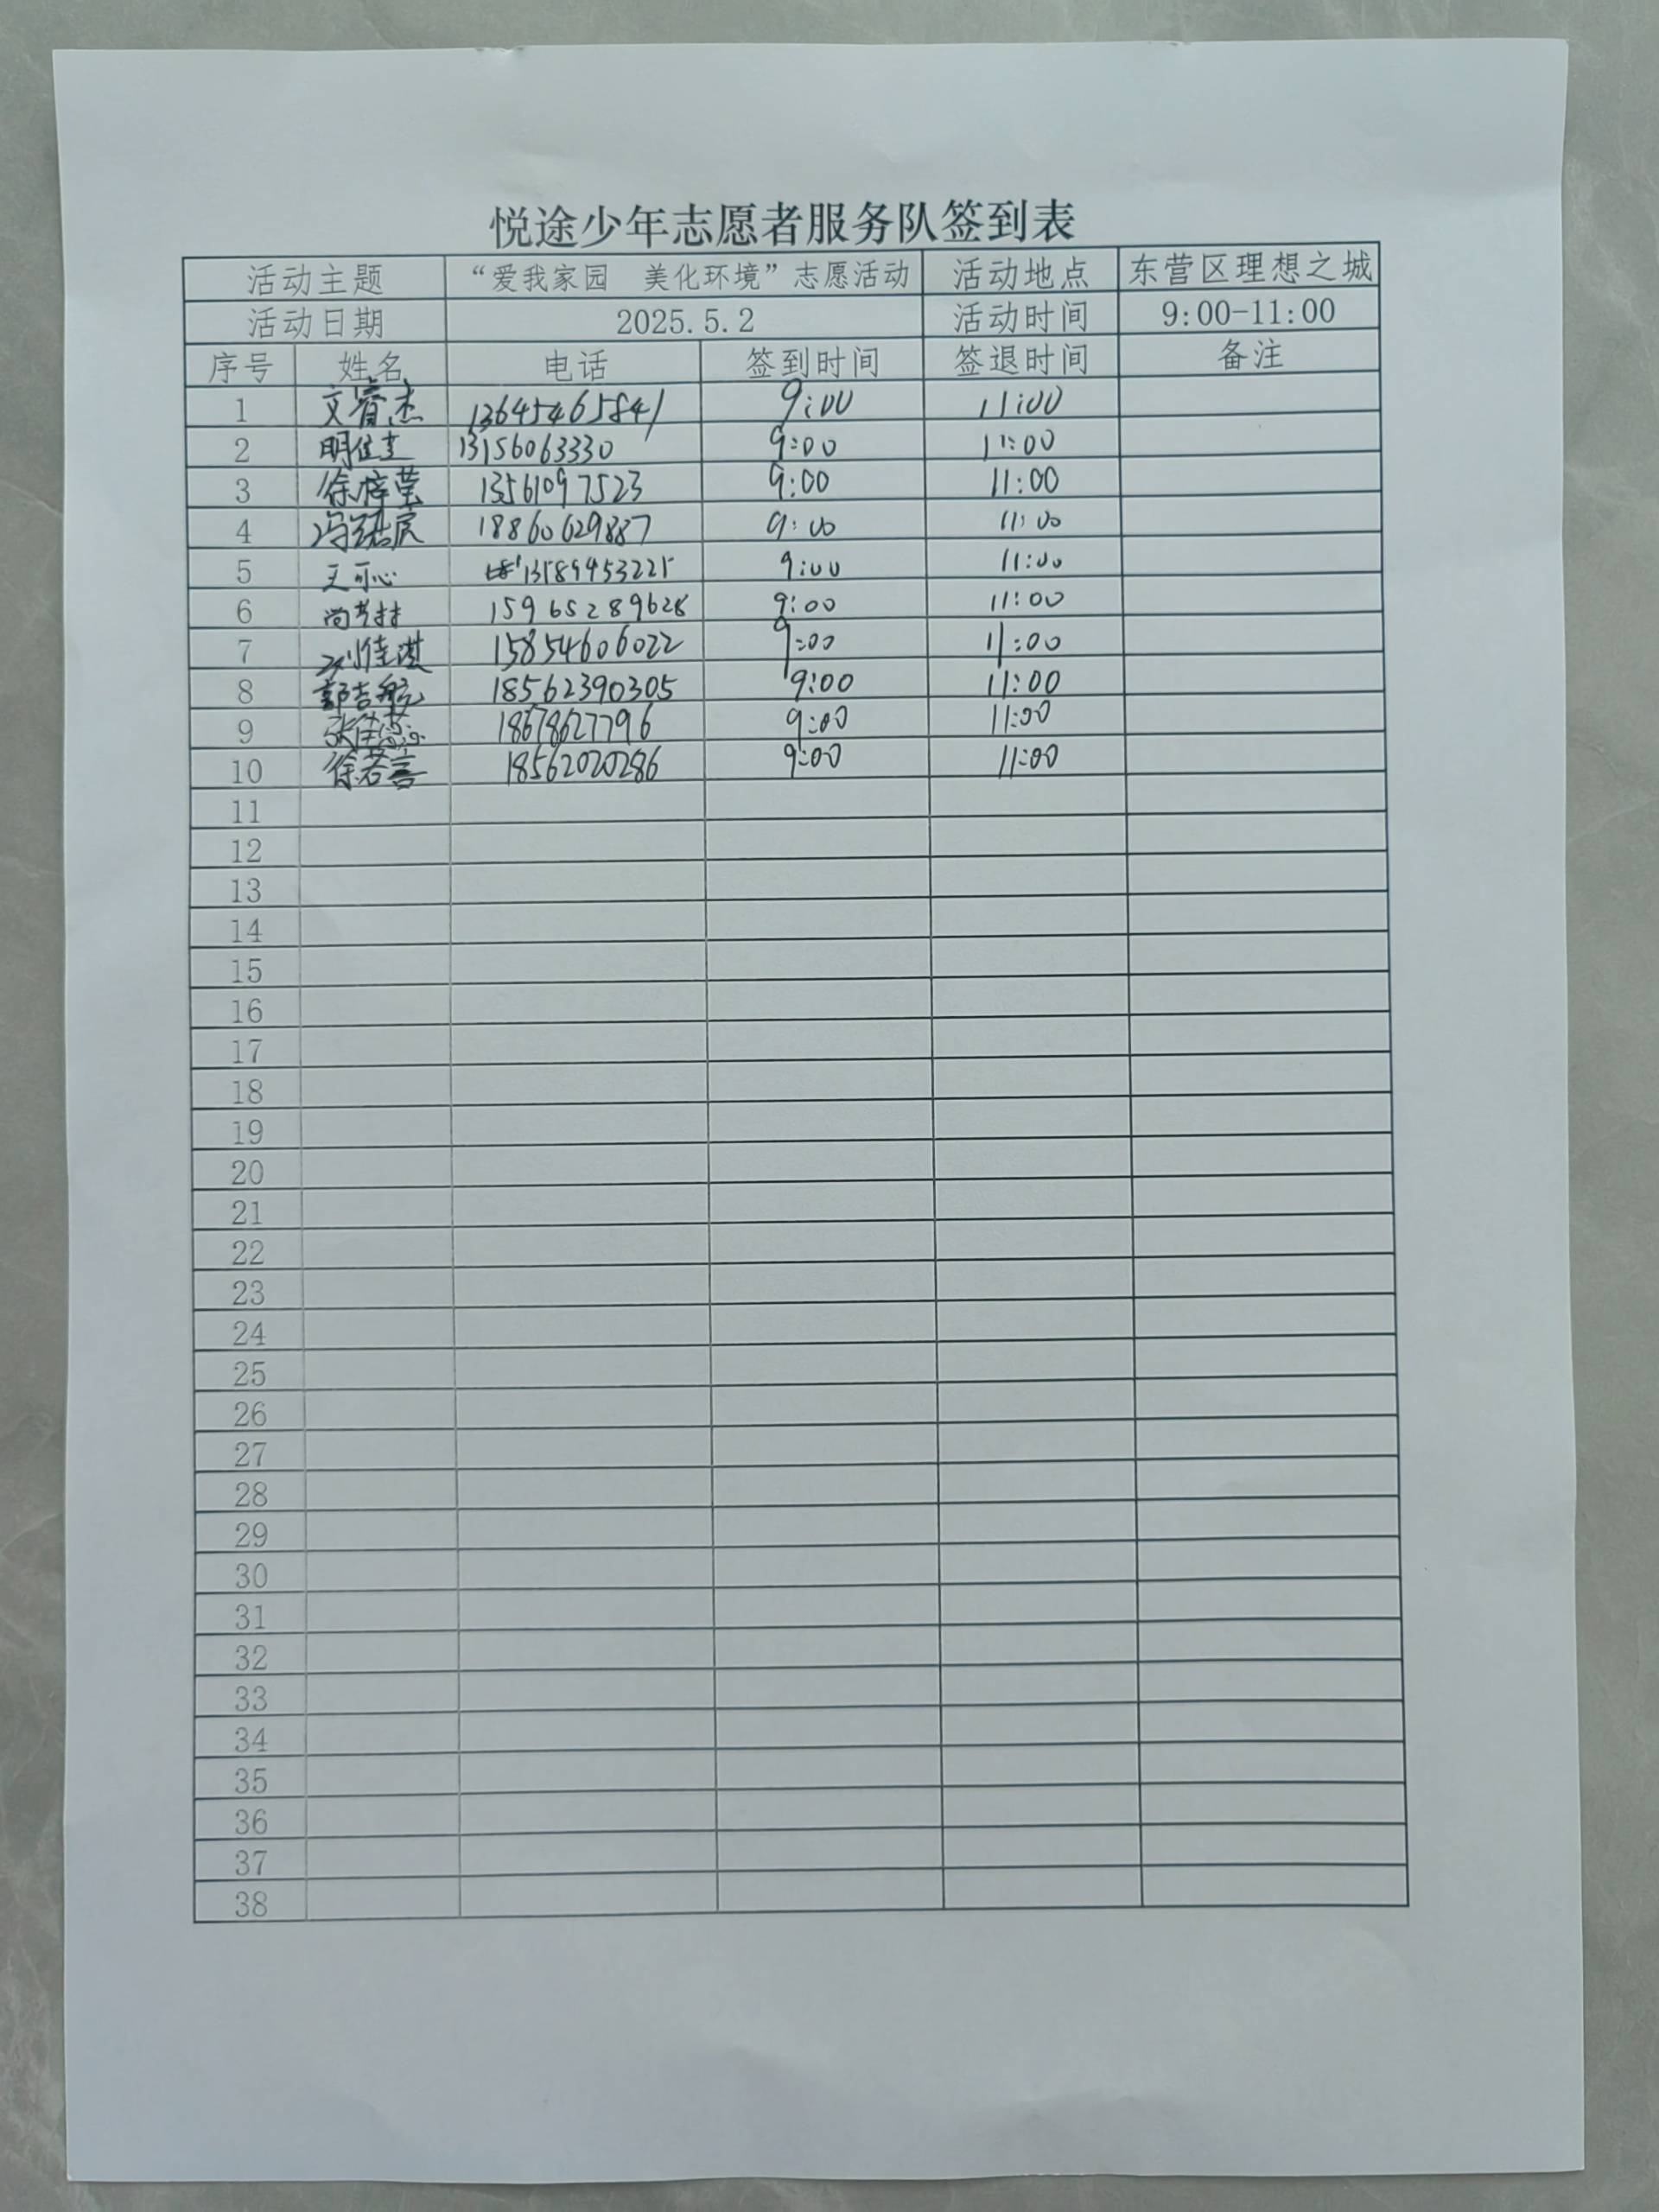 悦途少年志愿者服务队签到表
活动主题 “爱我家园 美化环境”志愿活动 活动地点 东营区理想之城
活动日期 2025.5.2 活动时间 9:00-11:00
序号 姓名 电话 签到时间 签退时间 备注
1 文睿杰 13645465841 9:00 11:00
2 13156063330 9:00 11:00
3 徐梓莹 13561097523 9:00 11:00
4 18860629887 9:00 11:00
5 王可心 13589453225 9:00 11:00
6 15965289628 9:00 11:00
7 刘佳淇 15854606022 9:00 11:00
8 郭吉航 18562390305 9:00 11:00
9 18678627796 9:00 11:00
10 徐若言 18562020286 9:00 11:00
11
12
13
14
15
16
17
18
19
20
21
22
23
24
25
26
27
28
29
30
31
32
33
34
35
36
37
38